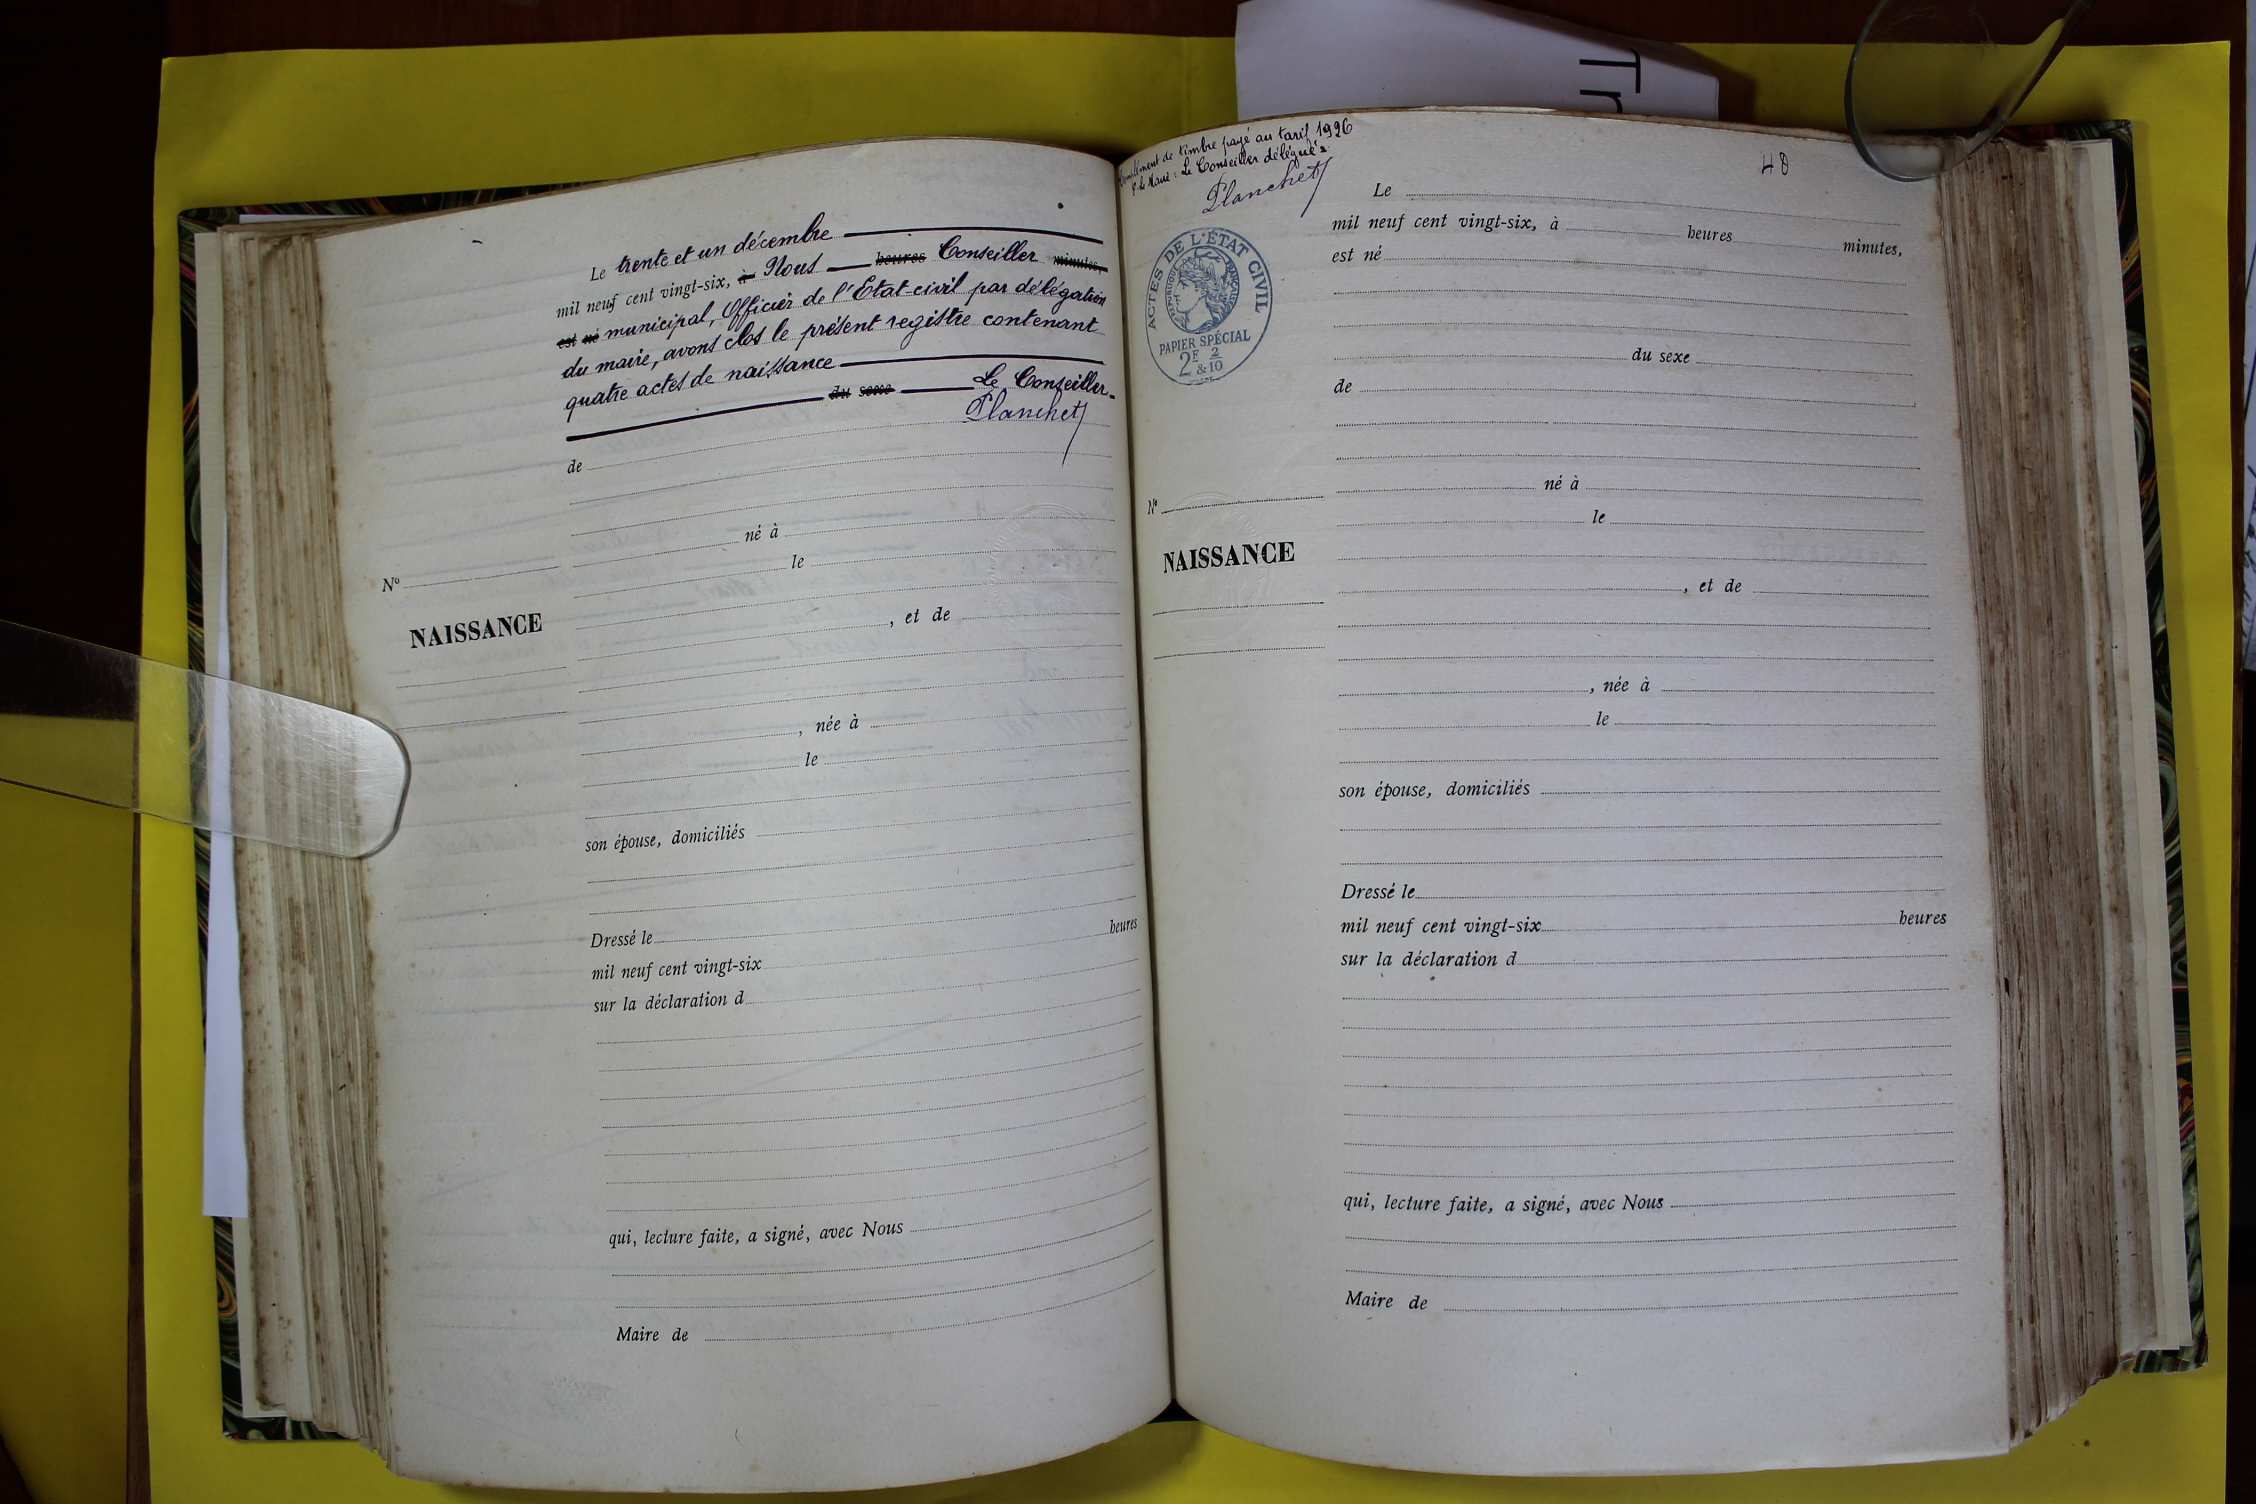 Le trente et un décembre
mil neuf cent vingt-six, à Nous heures Conseiller minutes,
est né municipal, Officier de l'Etat-civil par délégation
du maire, avons clos le présent registre contenant
quatre actes de naissance
du sexe Le Conseiller
Planchet
de
né à
le
N°
NAISSANCE
, et de
, née à
le
son épouse, domiciliés
Dressé le
mil neuf cent vingt-six heures
sur la déclaration d
qui, lecture faite, a signé, avec Nous
Maire de
Tr
Complément de timbre payé au tarif 1926
Pr le Maire : Le Conseiller délégué
Planchet
48
ACTES DE L'ÉTAT CIVIL
RÉPUBLIQUE FRANÇAISE
PAPIER SPÉCIAL
2F & 2/10
Le
mil neuf cent vingt-six, à heures minutes,
est né
du sexe
de
né à
N°
le
NAISSANCE
, et de
, née à
le
son épouse, domiciliés
Dressé le
mil neuf cent vingt-six heures
sur la déclaration d
qui, lecture faite, a signé, avec Nous
Maire de